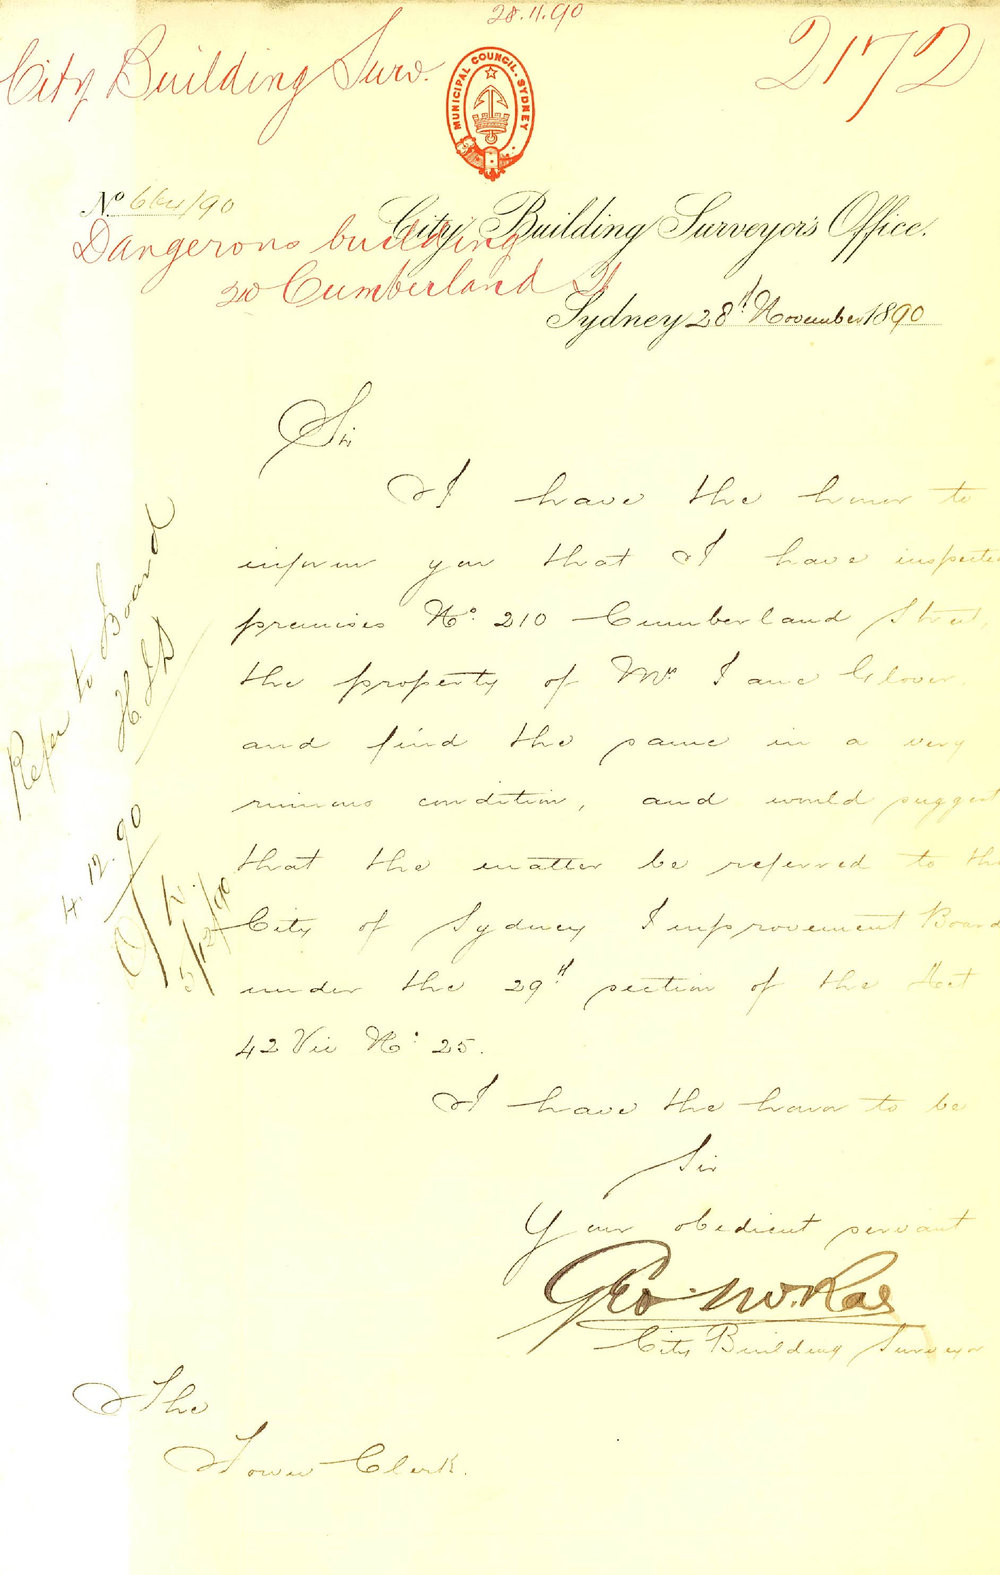 28.11.90
City Building Surv.
2172
MUNICIPAL COUNCIL. SYDNEY
No 664/90
City Building Surveyor's Office.
Dangerous building
210 Cumberland St
Sydney 28th November 1890
Sir
I have the honor to
inform you that I have inspected
premises No. 210 Cumberland Street,
the property of Mrs Jane Glover.
and find the same in a very
ruinous condition, and would suggest
that the matter be referred to the
City of Sydney Improvement Board
under the 29th section of the Act
42 Vic No. 25.
I have the honor to be
Sir
Your obedient servant
Geo. McRae
City Building Surveyor
The
Town Clerk.
Refer to Board
4.12.90
5/12/90